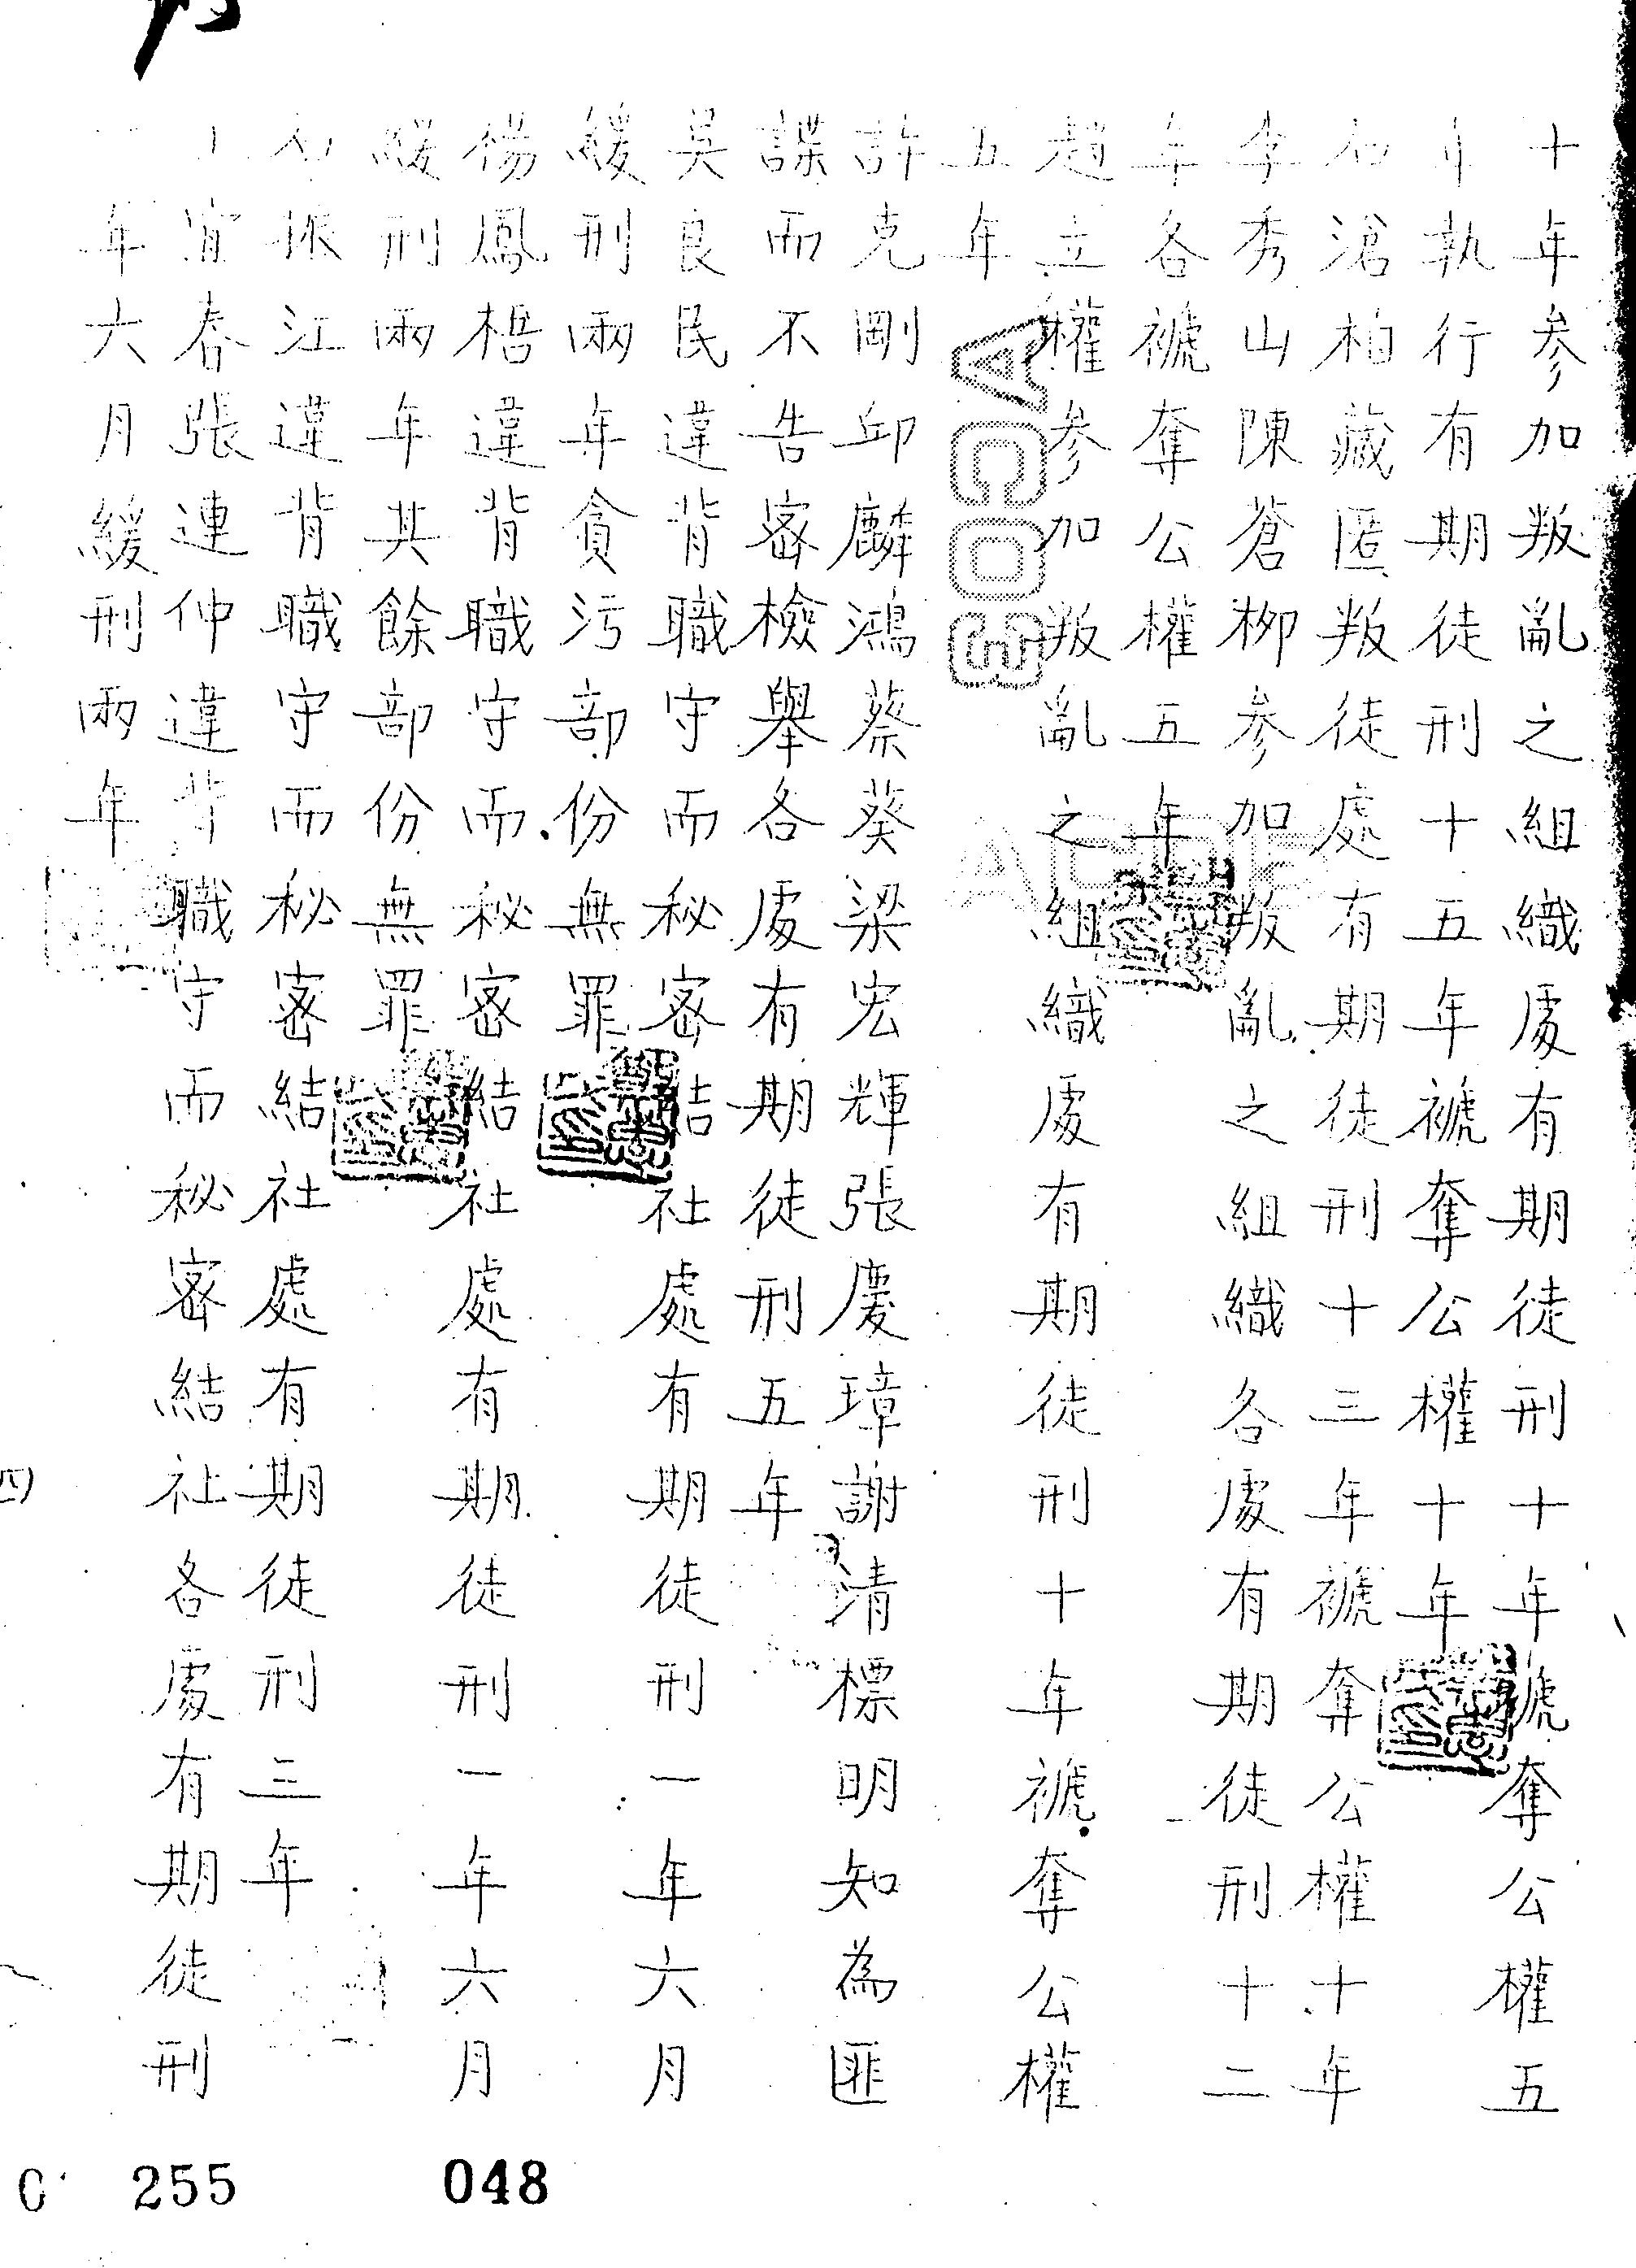 十年参加叛亂之組織處有期徒刑十年褫奪公權五
年執行有期徒刑十五年褫奪公權十年
石滄柏藏匿叛徒處有期徒刑十三年褫奪公權十年
李秀山陳蒼柳参加叛亂之組織各處有期徒刑十二
年各褫奪公權五年
趙立權参加叛亂之組織處有期徒刑十年褫奪公權
五年
許克剛邱麟鴻蔡葵梁宏輝張慶璋謝清標明知為匪
諜而不告密檢舉各處有期徒刑五年
吴良民違背職守而秘密結社處有期徒刑一年六月
緩刑兩年貪污部份無罪
楊鳳梧違背職守而秘密結社處有期徒刑一年六月
緩刑兩年其餘部份無罪
振江違背職守而秘密結社處有期徒刑三年
春張連仲違背職守而秘密結社各處有期徒刑
年六月緩刑兩年
四
C 255 048